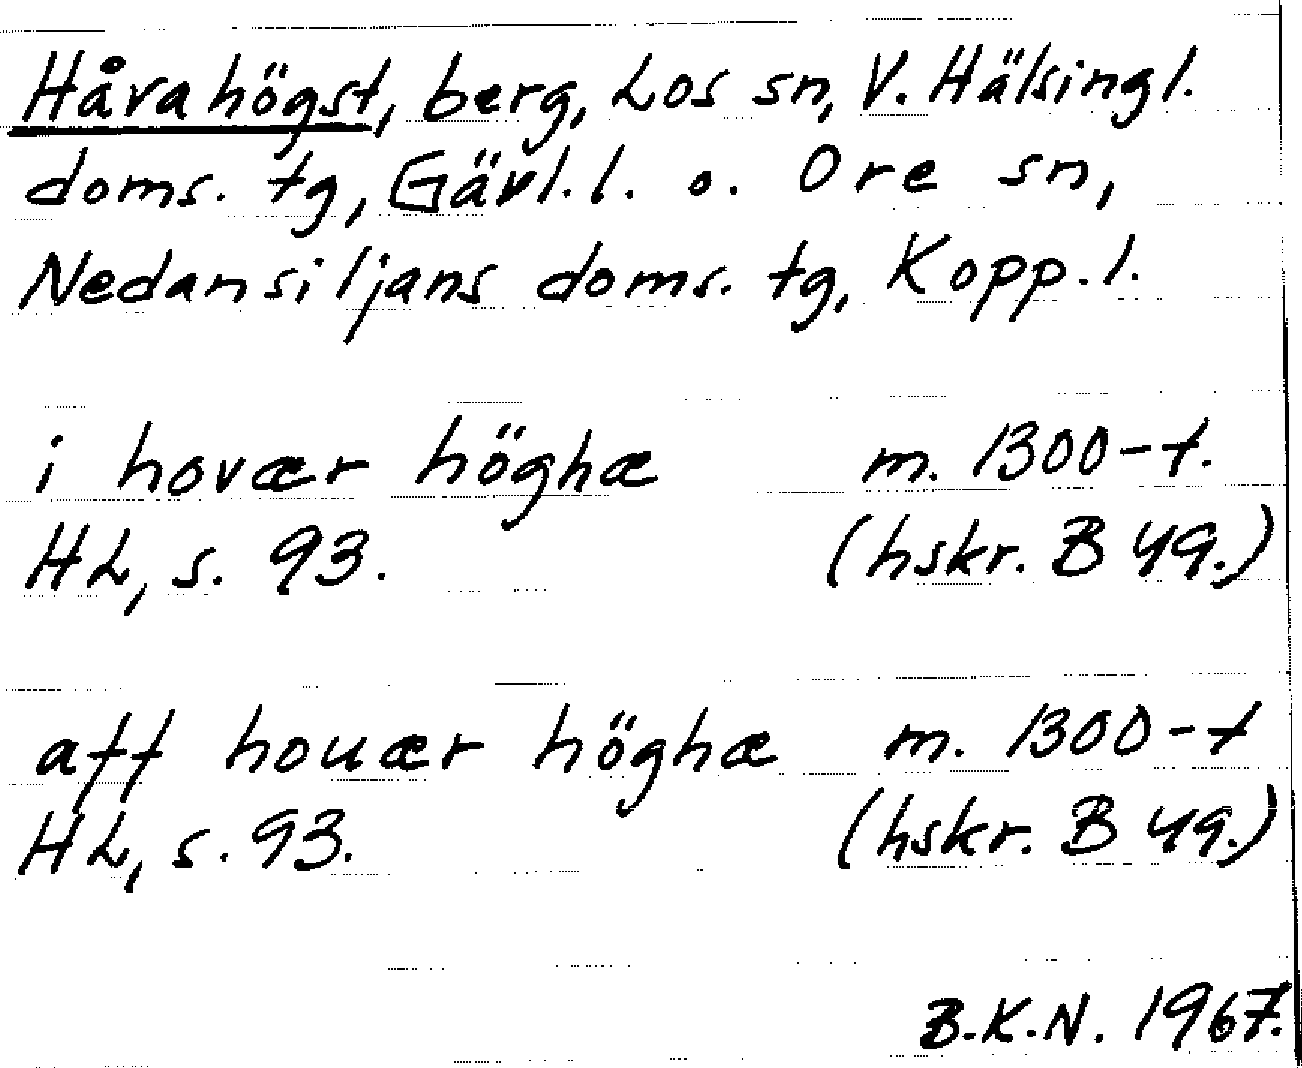 Håvahögst, berg, Los sn, V. Hälsingl.
doms. tg, Gävl. l. o. Ore sn,
Nedansiljans doms. tg, Kopp. l.
i hovær höghæ m. 1300-t.
HL, s. 93. (hskr. B 49.)
aff houær höghæ m. 1300-t
HL, s. 93. (hskr. B 49.)
B.K.N. 1967.